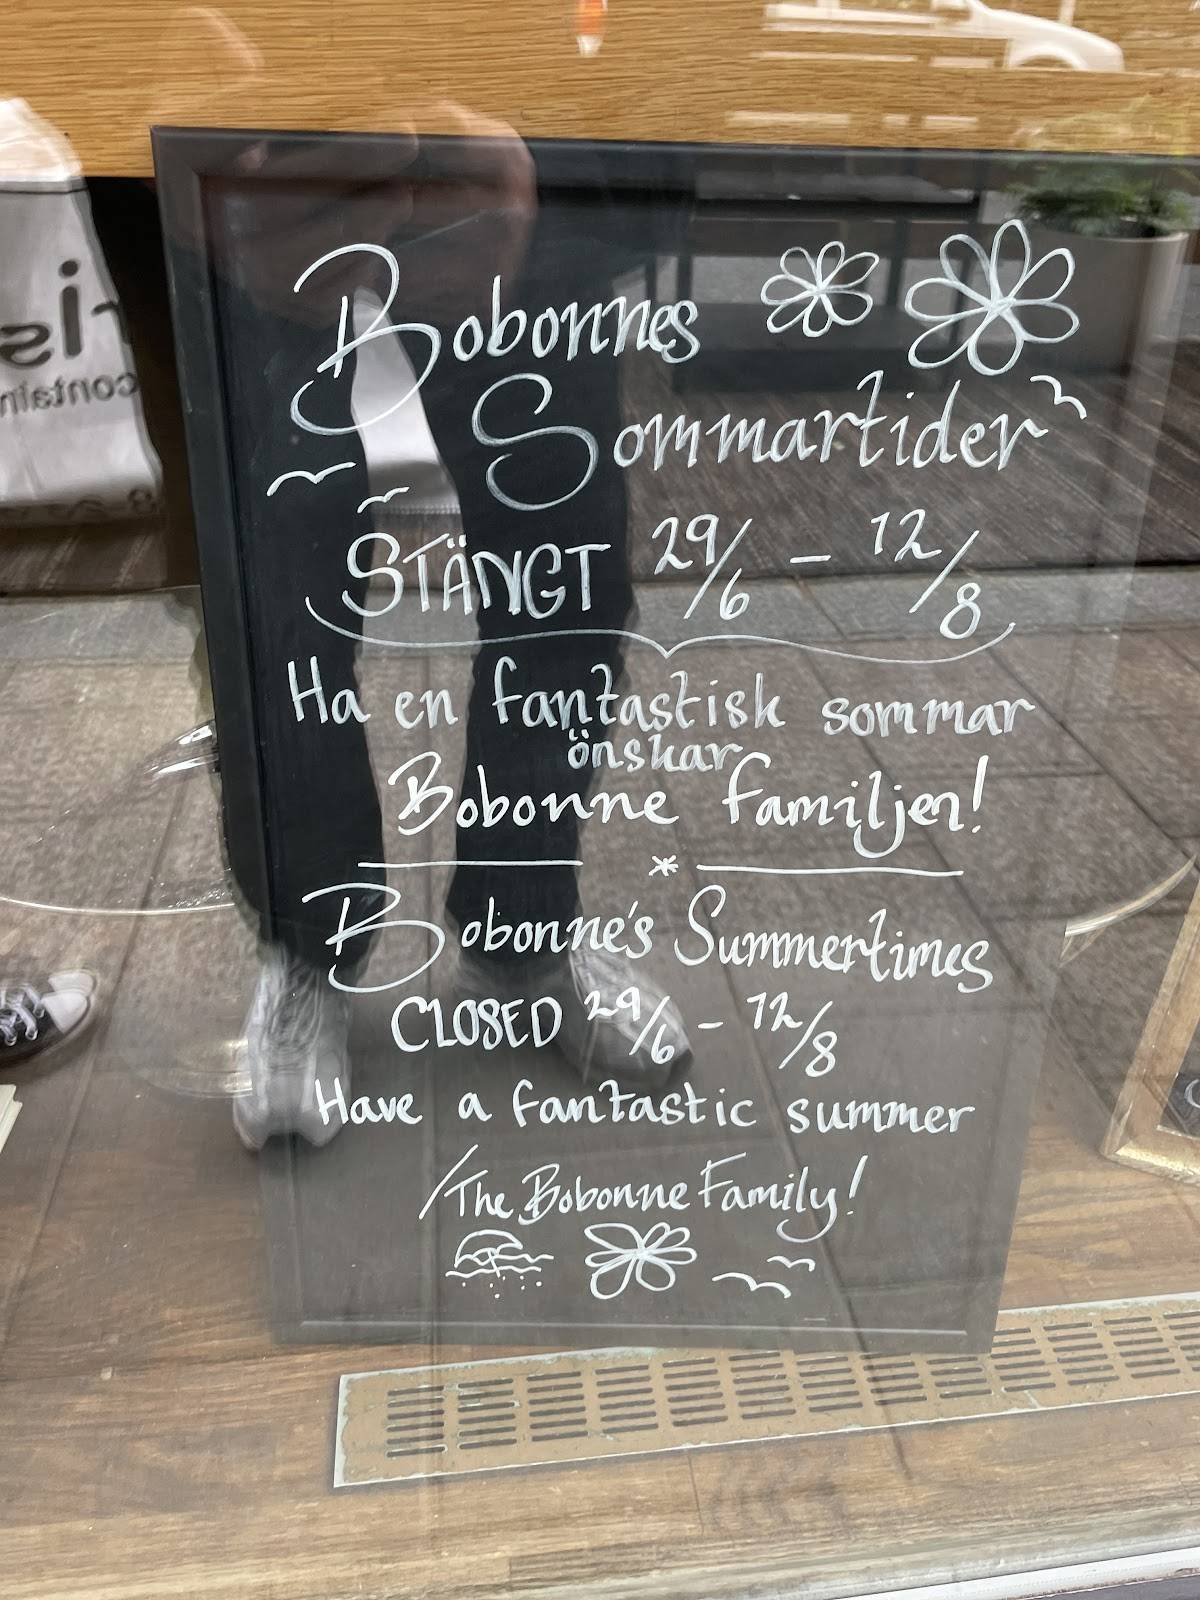 Bobonnes
Sommartider
STÄNGT 29/6 - 12/8
Ha en fantastisk sommar
önskar
Bobonne familjen!
*
Bobonne's Summertimes
CLOSED 29/6 - 12/8
Have a fantastic summer
/The Bobonne Family!